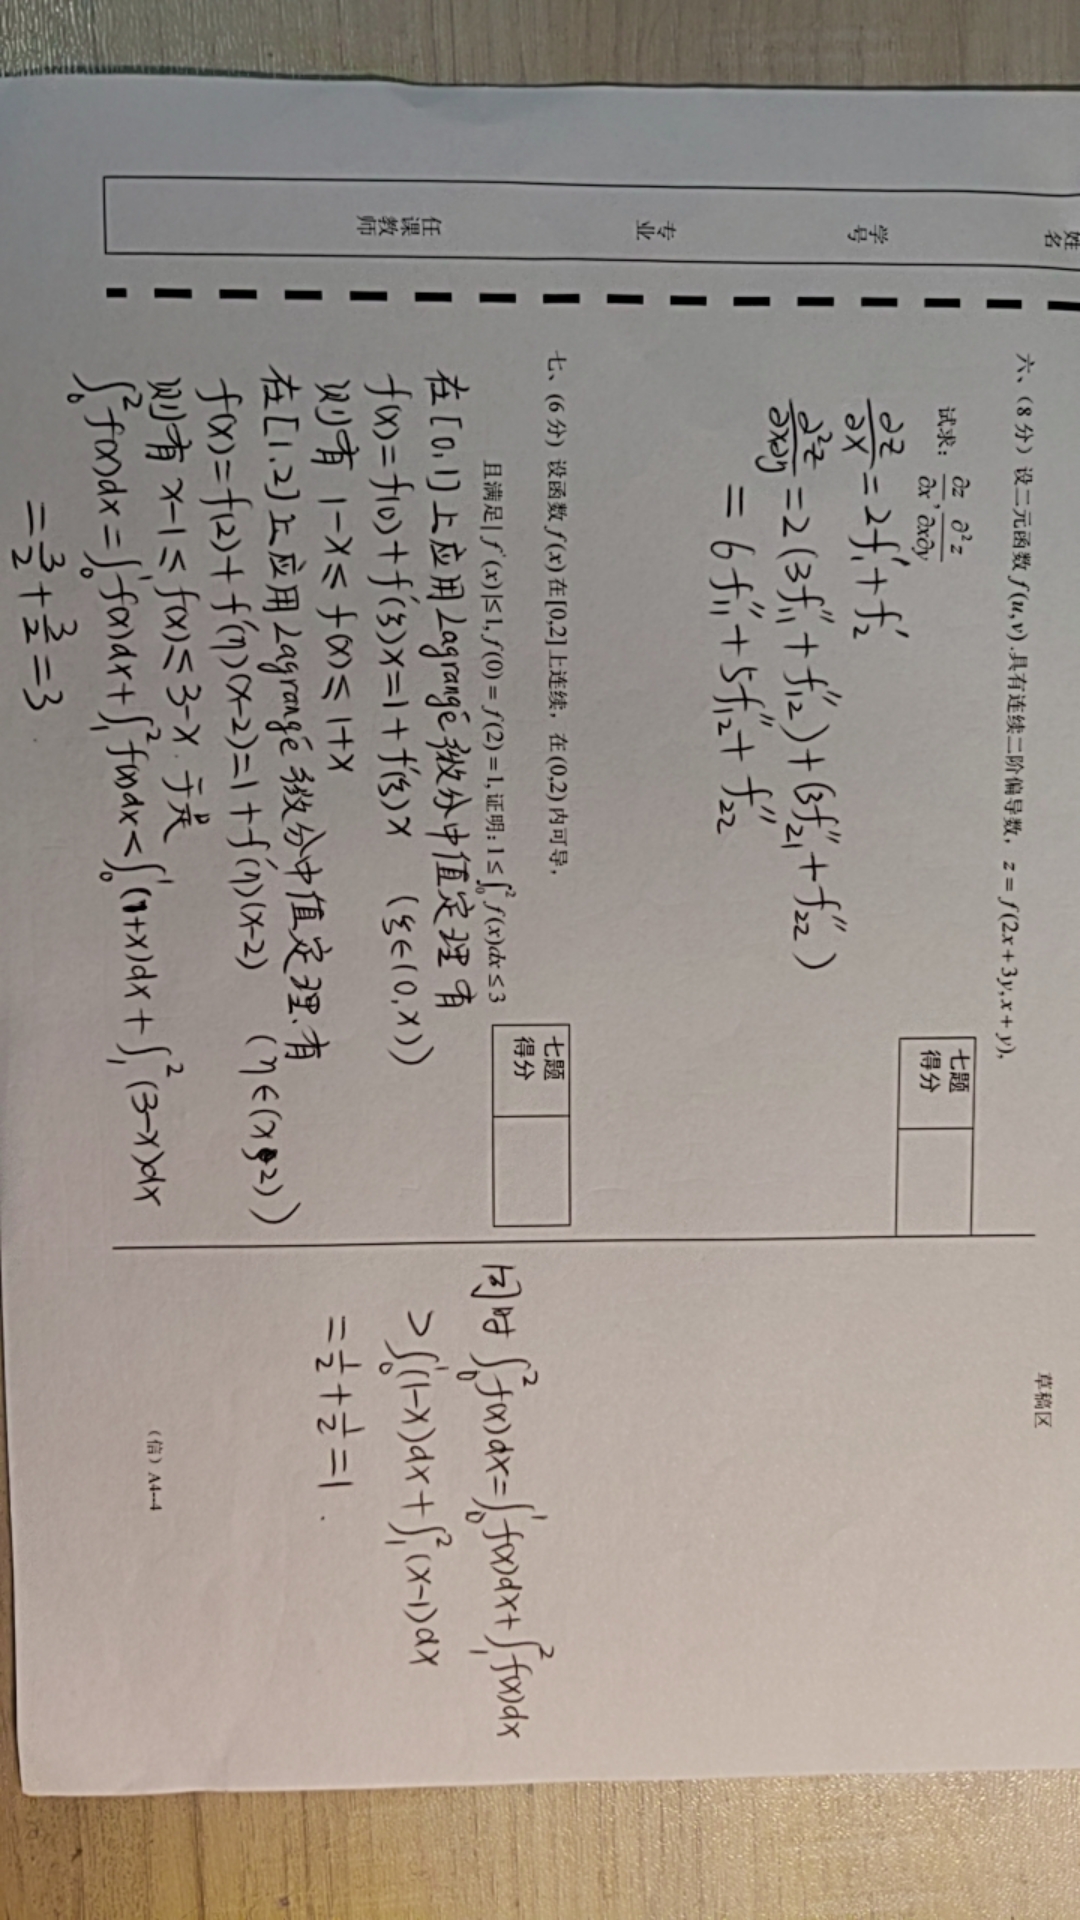 姓名
学号
专业
任课教师
六、（8 分）设二元函数 f(u,v).具有连续二阶偏导数，z = f(2x+3y,x+y),
试求：∂z/∂x, ∂²z/∂x∂y
七题得分
∂z/∂x = 2f₁' + f₂'
∂²z/∂x∂y = 2(3f₁₁'' + f₁₂'') + (3f₂₁'' + f₂₂'')
= 6f₁₁'' + 5f₁₂'' + f₂₂''
七、（6 分）设函数 f(x) 在[0,2]上连续，在(0,2)内可导，
且满足| f'(x)|≤1, f(0) = f(2)=1, 证明：1 ≤ ∫₀² f(x)dx ≤ 3
七题得分
在[0,1]上应用Lagrange微分中值定理有
f(x)=f(0)+f'(ξ)x=1+f'(ξ)x (ξ∈(0,x))
则有 1-x≤f(x)≤1+x
在[1,2]上应用Lagrange微分中值定理,有
f(x)=f(2)+f'(η)(x-2)=1+f'(η)(x-2) (η∈(x,2))
则有 x-1≤f(x)≤3-x. 于是
∫₀² f(x)dx=∫₀¹ f(x)dx+∫₁² f(x)dx<∫₀¹ (1+x)dx+∫₁² (3-x)dx
=3/2+3/2=3
草稿区
同时 ∫₀² f(x)dx=∫₀¹ f(x)dx+∫₁² f(x)dx
>∫₀¹ (1-x)dx+∫₁² (x-1)dx
=1/2+1/2=1.
（信）A4--4